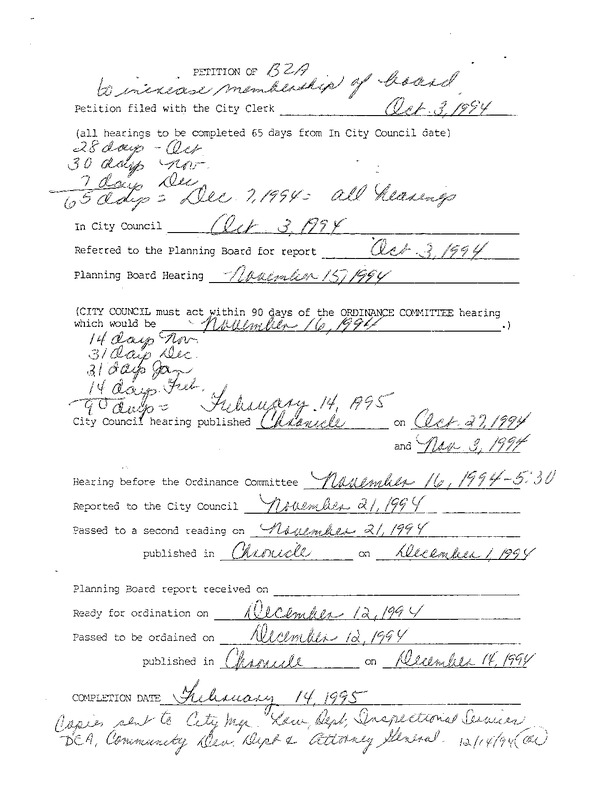 PETITION OF BZA
to increase membership of board
Petition filed with the City Clerk Oct. 3, 1994
(all hearings to be completed 65 days from In City Council date)
28 days - Oct
30 days Nov.
7 days Dec
65 days = Dec 7, 1994 = all hearings
In City Council Oct 3, 1994
Referred to the Planning Board for report Oct. 3, 1994
Planning Board Hearing November 15, 1994
(CITY COUNCIL must act within 90 days of the ORDINANCE COMMITTEE hearing
which would be November 16, 1994.)
14 days Nov.
31 days Dec.
31 days Jan
14 days Feb.
90 days = February 14, 1995
City Council hearing published Chronicle on Oct. 27, 1994
and Nov 3, 1994
Hearing before the Ordinance Committee November 16, 1994-5:30
Reported to the City Council November 21, 1994
Passed to a second reading on November 21, 1994
published in Chronicle on December 1, 1994
Planning Board report received on
Ready for ordination on December 12, 1994
Passed to be ordained on December 12, 1994
published in Chronicle on December 14, 1994
COMPLETION DATE February 14, 1995
Copies sent to City Mgr. Law Dept, Inspectional Services
DCA, Community Dev. Dept & Attorney General. 12/14/94